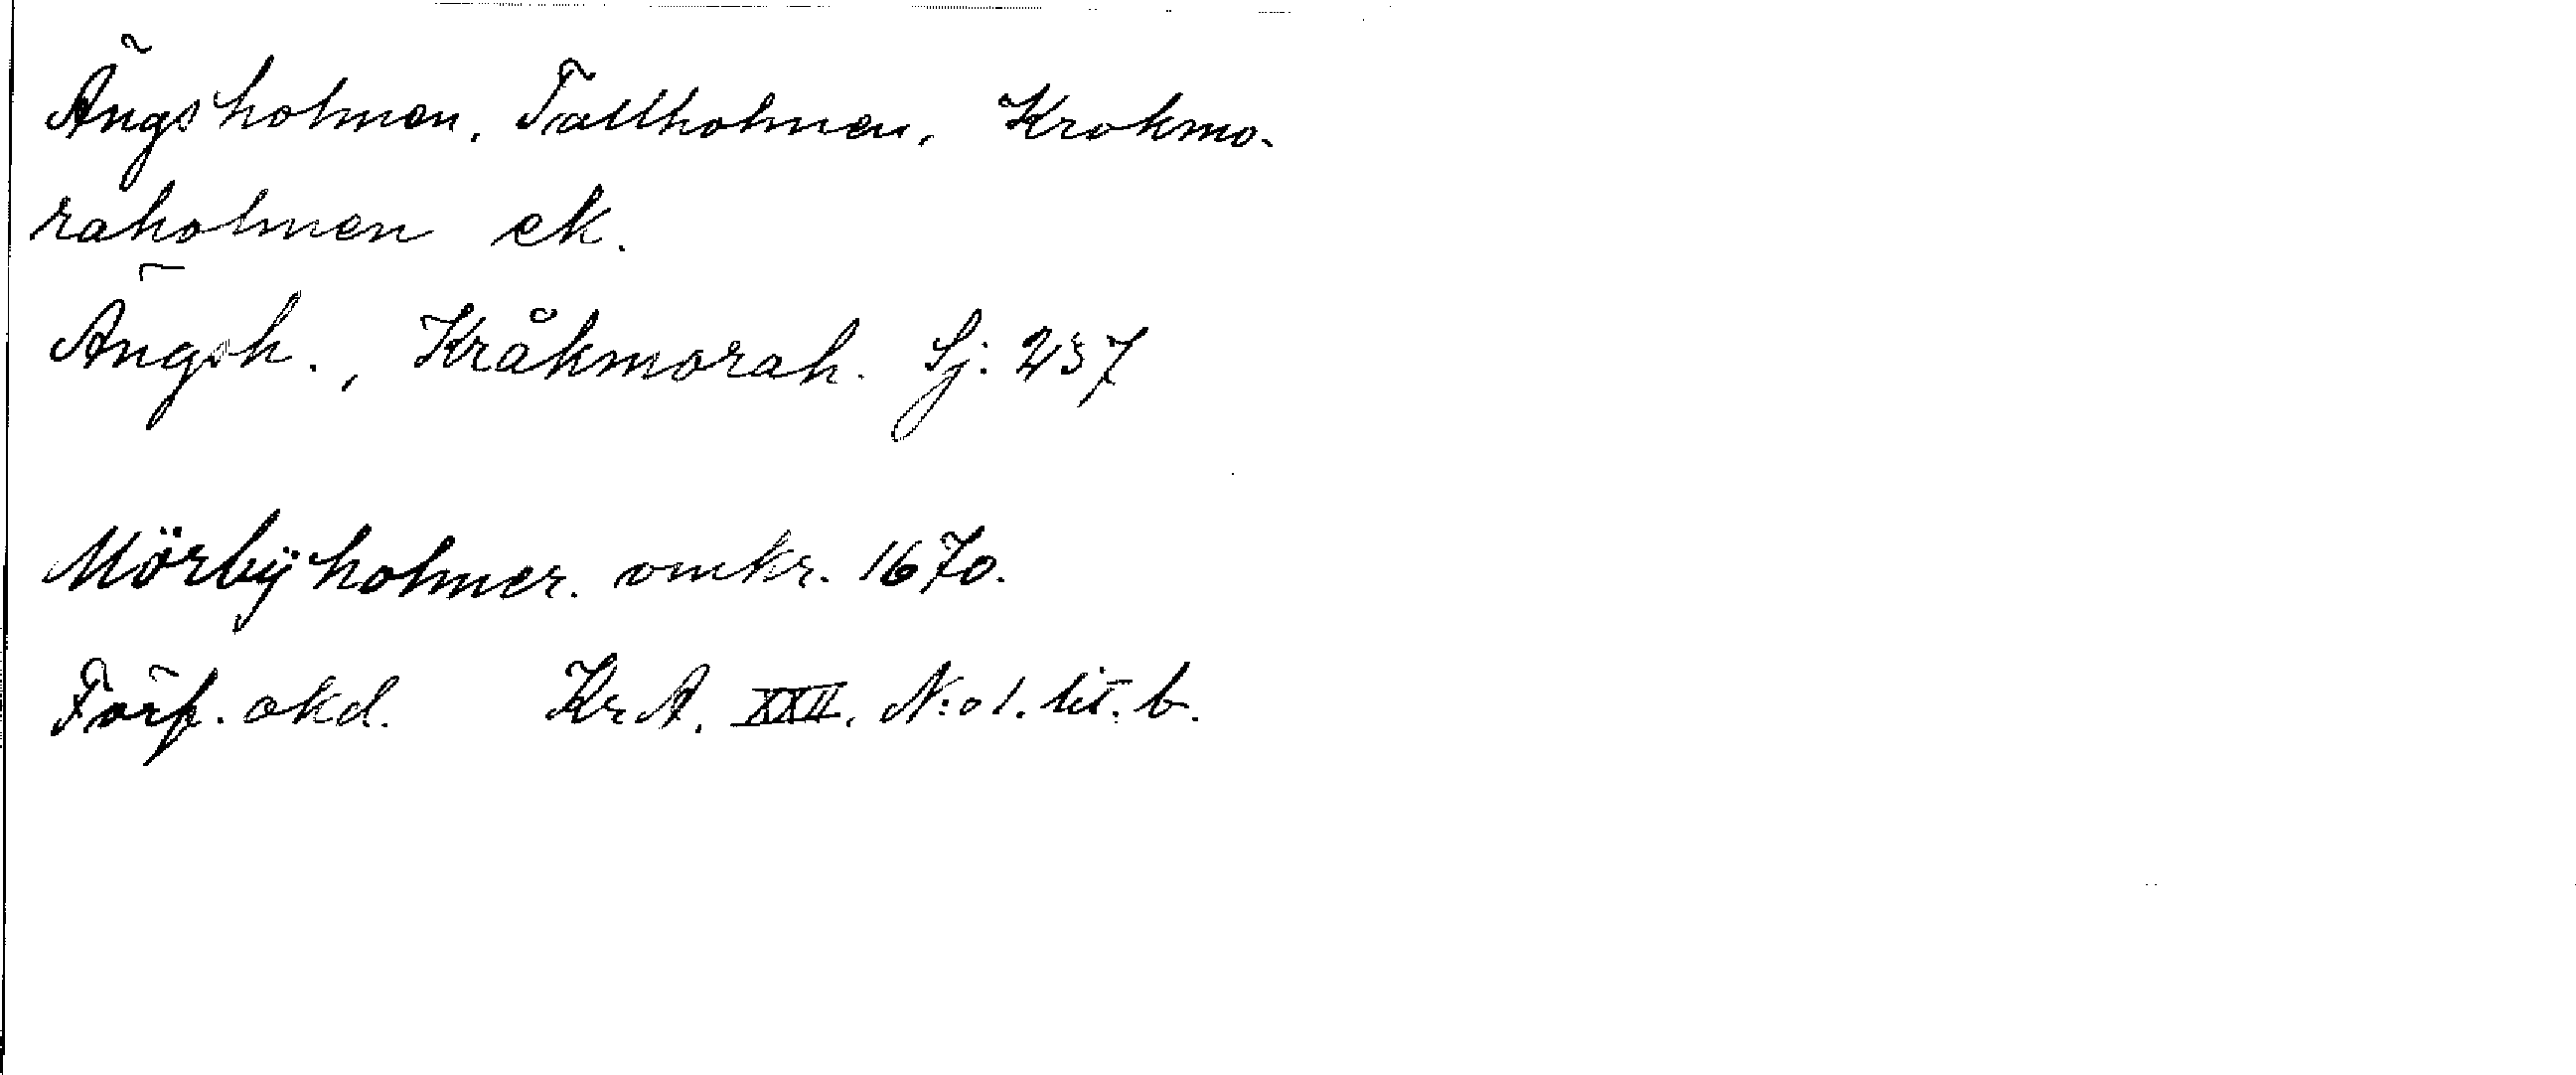 Ängsholmen, Tallholmen, Krokmo-
raholmen ek.
Ängsh., Kråkmorah. Sj: 237
Mörbÿholmer. omkr. 1670.
Förf. okd. Kr. A. XXII. N:o 1. lit. b.